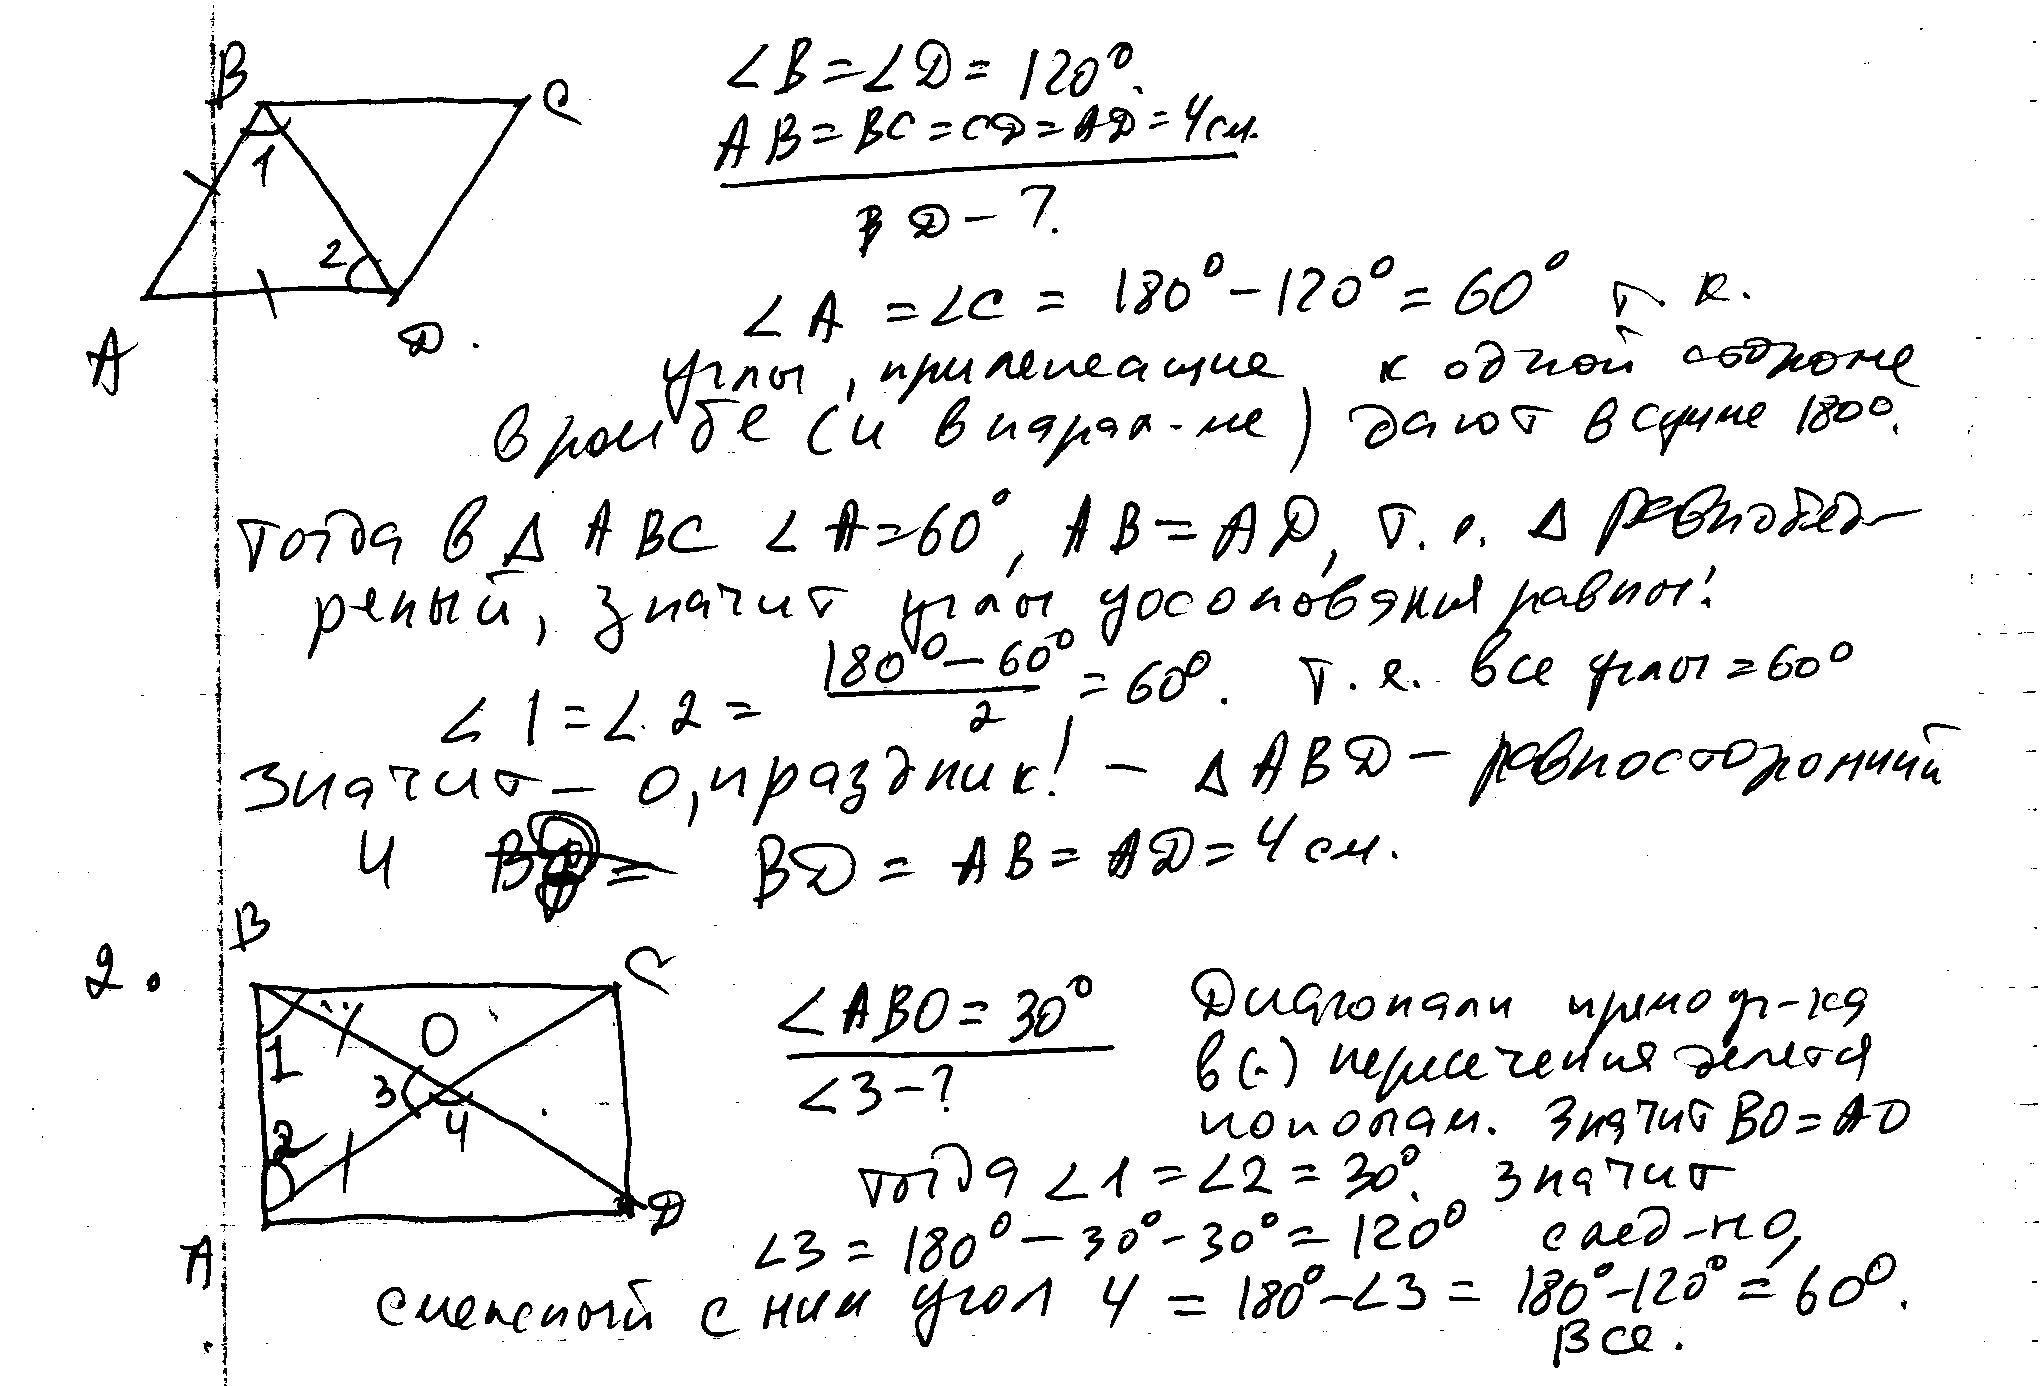 B
C
1
2
A
D.
∠B=∠D=120°.
AB=BC=CD=AD=4см.
BD-?
∠A=∠C=180°-120°=60° т.к.
углы, прилежащие к одной стороне
в ромбе (и в парал-ме) дают в сумме 180°.
Тогда в Δ ABC ∠A=60°, AB=AD, т.е. Δ равнобед-
реный, значит углы у основания равны!
∠1=∠2= (180°-60°)/2 =60°. т.е. все углы=60°
Значит – о, праздник! – Δ ABD – равносторонний
и BD=AB=AD=4см.
2.
B
C
O
1
3
4
2
A
D
∠ABO=30°
∠3-?
Диагонали прямоуг-ка
в (.) пересечения делятся
пополам. Значит BO=AO
тогда ∠1=∠2=30°. Значит
∠3=180°-30°-30°=120° след-но,
смежный с ним угол 4=180°-∠3=180°-120°=60°.
Все.